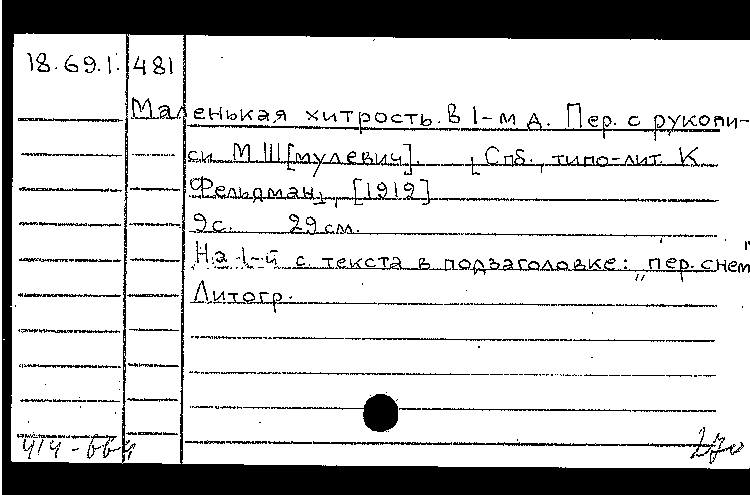 18.69.1. 481
Маленькая хитрость. В 1-м д. Пер. с рукопи-
си М Ш[мулевич]. [Спб., типо-лит. К
Фельдман], [1919]
9 с. 29 см.
На 1-й с. текста в подзаголовке: „пер. с нем"
Литогр.